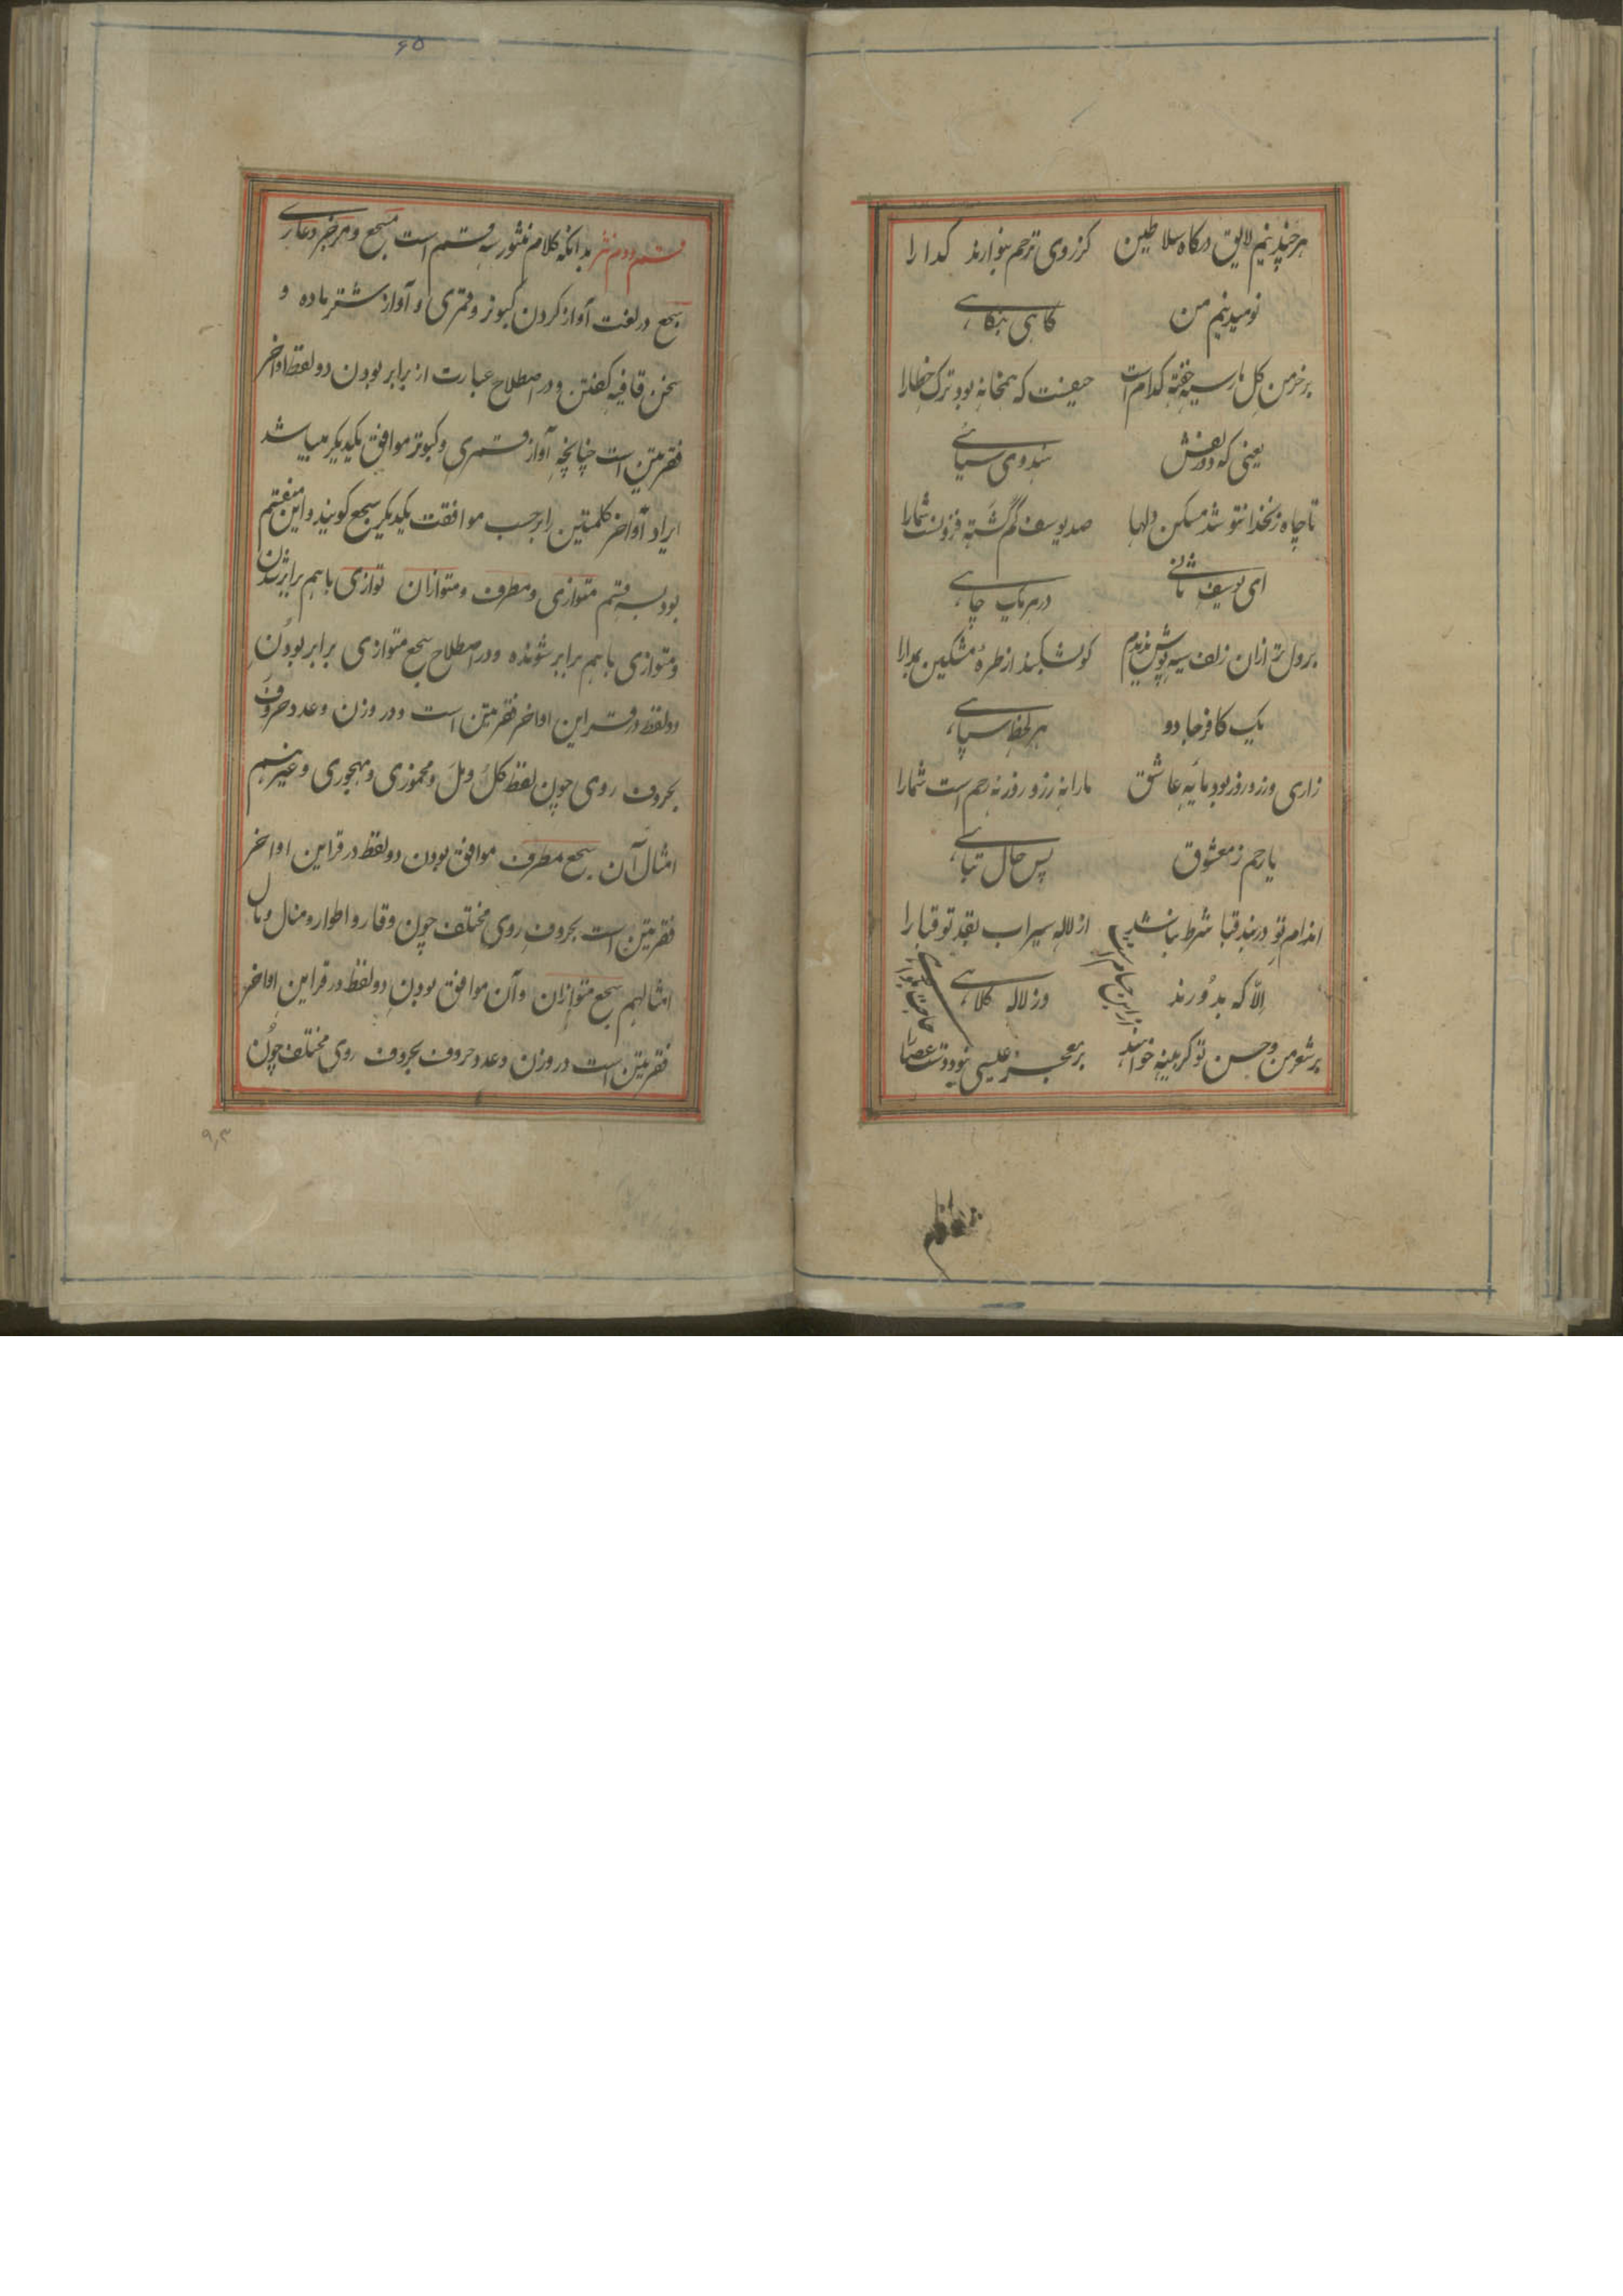 هر چند نیم لایق درگاه سلاطین کز روی ترحم بنوازند گدا را
نومید نیم من گاهی بنگاهی
بر خرمن گل مار سیه خفته کدام است حیفست که همخانه بود ترک خطا را
یعنی که دو زلفش هندوی سیاهی
تا چاه زنخدان تو شد مسکن دلها صد یوسف گم گشته فزونست شما را
ای یوسف ثانی در هر یک چاهی
بر دل تر ازان زلف سیه پوش ندیدم کو بشکند از طره مشکین
یک کافر جادو هر لحظه سپاهی
زاری و زر و زور بود مایه عاشق ما را نه زر و زور نه رحم است شما را
یا رحم ز معشوق پس حال تباهی
اندام تو در بند قبا شرط نباشد از لاله سیراب بقد تو قبا را
الا که بدوزند وز لاله کلاهی
بر شعر من و حسن تو گر بینه خواهند بر معجز عیسی نبود دست عصا را
۶۵
قسم دوم نثر بدانکه کلام منثور سه قسم است مسجع و مرجز و عاری
سجع در لغت آواز کردن کبوتر و قمری و آواز شتر ماده و
سخن قافیه گفتن و در اصطلاح عبارت از برابر بودن دو لفظ اواخر
فقرتین است چنانچه آواز قمری و کبوتر موافق یکدیگر میباشد
ایراد آواخر کلمتین را برحسب موافقت یکدیگر سجع گویند و این منقسم
بود بسه قسم متوازی و مطرف و متوازان توازی باهم برابر شدن
و متوازی باهم برابر شونده و در اصطلاح سجع متوازی برابر بودن
دو لفظ در قراین اواخر فقرتین است و در وزن و عدد حروف
بحروف روی چون لفظ گل و مل و مخموری و مهجوری و غیرهم
امثال آن سجع مطرف موافق بودن دو لفظ در قراین اواخر
فقرتین است بحروف روی مختلف چون وقار و اطوار و منال و مال
امثالهم سجع متوازان و آن موافق بودن دو لفظ در قراین اواخر
فقرتین است در وزن و عدد حروف بحروف روی مختلف چون